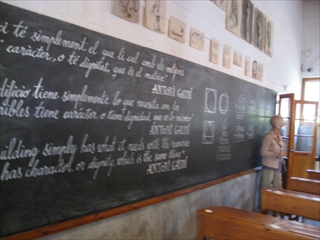 i té simplement el que li cal amb els mitjans
caràcter, o té dignitat, que és el mateix"
ANTONI GAUDÍ
dificio tiene simplemente lo que necesita con los
ibles tiene carácter o tiene dignidad, que es lo mismo"
ANTONI GAUDÍ
uilding simply has what it needs with the resources
has character, or dignity which is the same thing"
ANTONI GAUDÍ